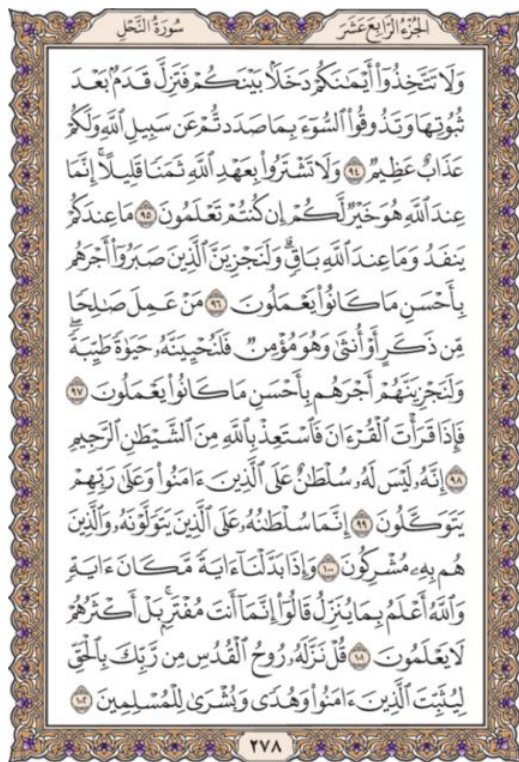 الجُزْءُ الرَّابِعَ عَشَرَ
سُورَةُ النَّحْلِ
وَلَا تَتَّخِذُوٓا۟ أَيْمَٰنَكُمْ دَخَلًۢا بَيْنَكُمْ فَتَزِلَّ قَدَمٌۢ بَعْدَ
ثُبُوتِهَا وَتَذُوقُوا۟ ٱلسُّوٓءَ بِمَا صَدَدتُّمْ عَن سَبِيلِ ٱللَّهِ وَلَكُمْ
عَذَابٌ عَظِيمٌ ٩٤ وَلَا تَشْتَرُوا۟ بِعَهْدِ ٱللَّهِ ثَمَنًا قَلِيلًا ۚ إِنَّمَا
عِندَ ٱللَّهِ هُوَ خَيْرٌ لَّكُمْ إِن كُنتُمْ تَعْلَمُونَ ٩٥ مَا عِندَكُمْ
يَنفَدُ وَمَا عِندَ ٱللَّهِ بَاقٍ ۗ وَلَنَجْزِيَنَّ ٱلَّذِينَ صَبَرُوٓا۟ أَجْرَهُم
بِأَحْسَنِ مَا كَانُوا۟ يَعْمَلُونَ ٩٦ مَنْ عَمِلَ صَٰلِحًا
مِّن ذَكَرٍ أَوْ أُنثَىٰ وَهُوَ مُؤْمِنٌ فَلَنُحْيِيَنَّهُۥ حَيَوٰةً طَيِّبَةً ۖ
وَلَنَجْزِيَنَّهُمْ أَجْرَهُم بِأَحْسَنِ مَا كَانُوا۟ يَعْمَلُونَ ٩٧
فَإِذَا قَرَأْتَ ٱلْقُرْءَانَ فَٱسْتَعِذْ بِٱللَّهِ مِنَ ٱلشَّيْطَٰنِ ٱلرَّجِيمِ
٩٨ إِنَّهُۥ لَيْسَ لَهُۥ سُلْطَٰنٌ عَلَى ٱلَّذِينَ ءَامَنُوا۟ وَعَلَىٰ رَبِّهِمْ
يَتَوَكَّلُونَ ٩٩ إِنَّمَا سُلْطَٰنُهُۥ عَلَى ٱلَّذِينَ يَتَوَلَّوْنَهُۥ وَٱلَّذِينَ
هُم بِهِۦ مُشْرِكُونَ ١٠٠ وَإِذَا بَدَّلْنَآ ءَايَةً مَّكَانَ ءَايَةٍ ۙ
وَٱللَّهُ أَعْلَمُ بِمَا يُنَزِّلُ قَالُوٓا۟ إِنَّمَآ أَنتَ مُفْتَرٍۭ ۚ بَلْ أَكْثَرُهُمْ
لَا يَعْلَمُونَ ١٠١ قُلْ نَزَّلَهُۥ رُوحُ ٱلْقُدُسِ مِن رَّبِّكَ بِٱلْحَقِّ
لِيُثَبِّتَ ٱلَّذِينَ ءَامَنُوا۟ وَهُدًى وَبُشْرَىٰ لِلْمُسْلِمِينَ ١٠٢
٢٧٨